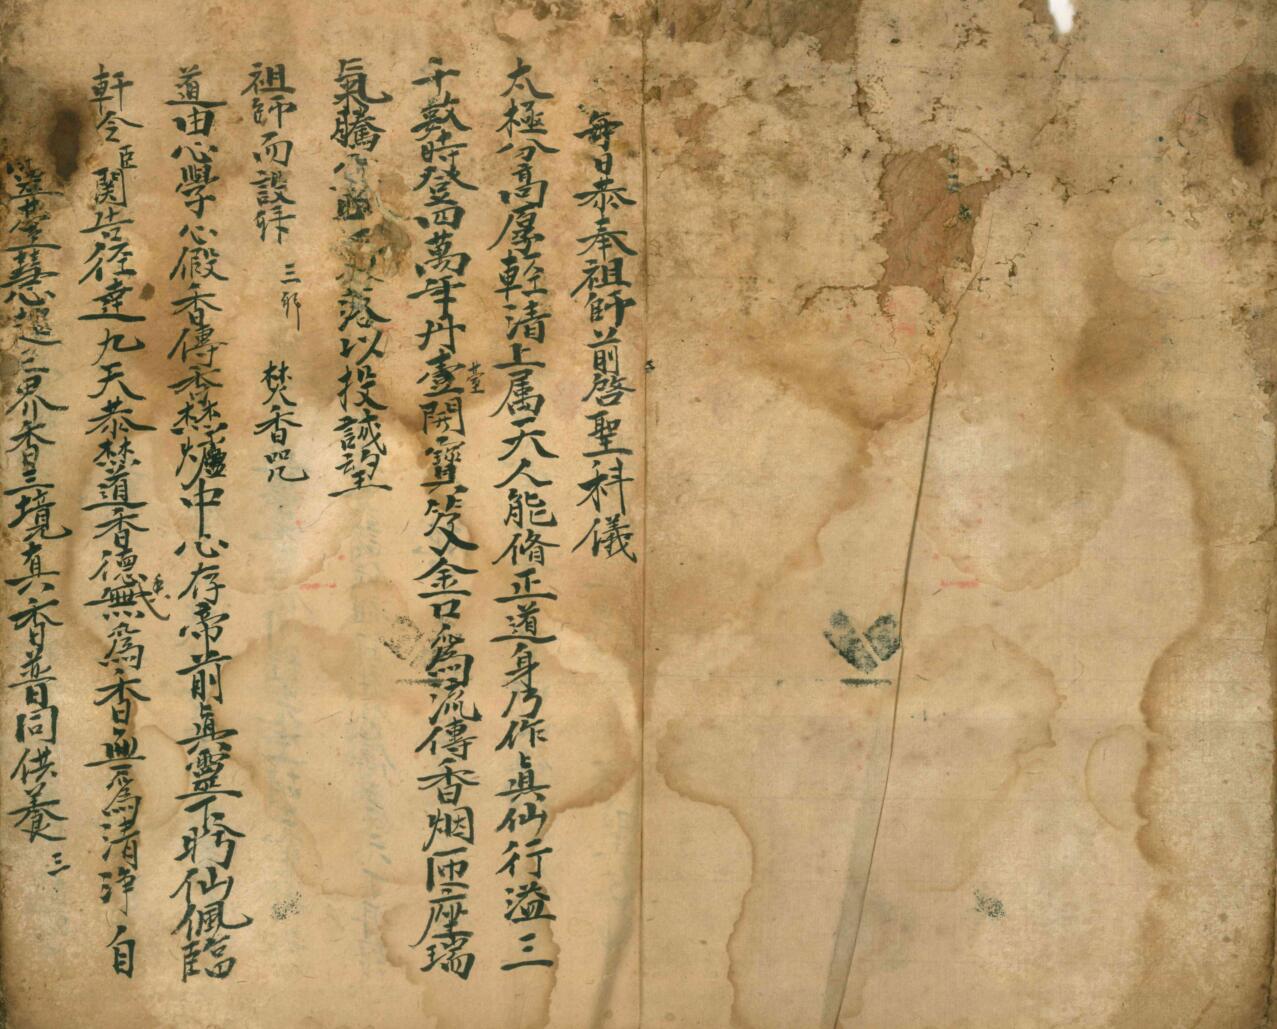 每日恭奉祖師前啓聖科儀
太極分高厚輊清上属天人能脩正道身乃作眞仙行溢三
千數時登四萬年丹壹臺開寶笈金口爲流傳香烟匝座瑞
氣騰落以投誠望
祖師而設拜 三 焚香咒
道由心學心假香傳香爇爐中心存帝前眞靈下盻仙佩臨
軒今臣関告径達九天恭焚道香德香無爲香無爲清浄自
慧超三界香三境真香普同供養 三